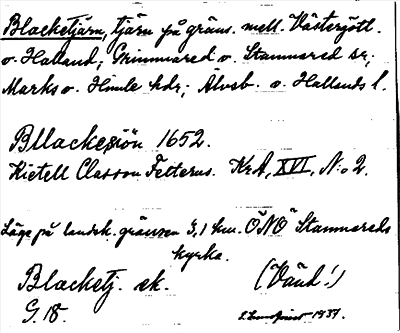 Blacketjärn, tjärn på gräns. mell. Västergötl.
o. Halland; Grimmared o. Stamnared sr;
Marks o. Himle hdr; Älvsb. o. Hallands l.
Bllackesiön 1652.
Kietell Classon Felterus. KrA, XVI, N:o 2.
Läge på landsk. gränsen 3,1 km. ÖNÖ Stamnareds
kyrka.
Blacketj. ek. (Vänd!)
G. 18. 1937.